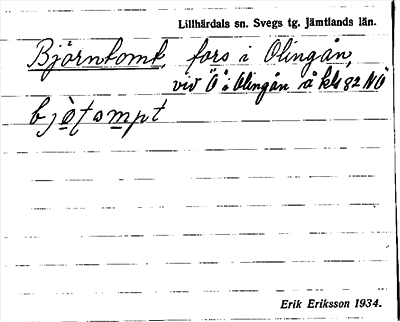 Lillhärdals sn. Svegs tg. Jämtlands län.
Björnkomt, fors i Olingån,
vid "Ö" i Olingån å kbl 82 NO
bjö̀tompt
Erik Eriksson 1934.